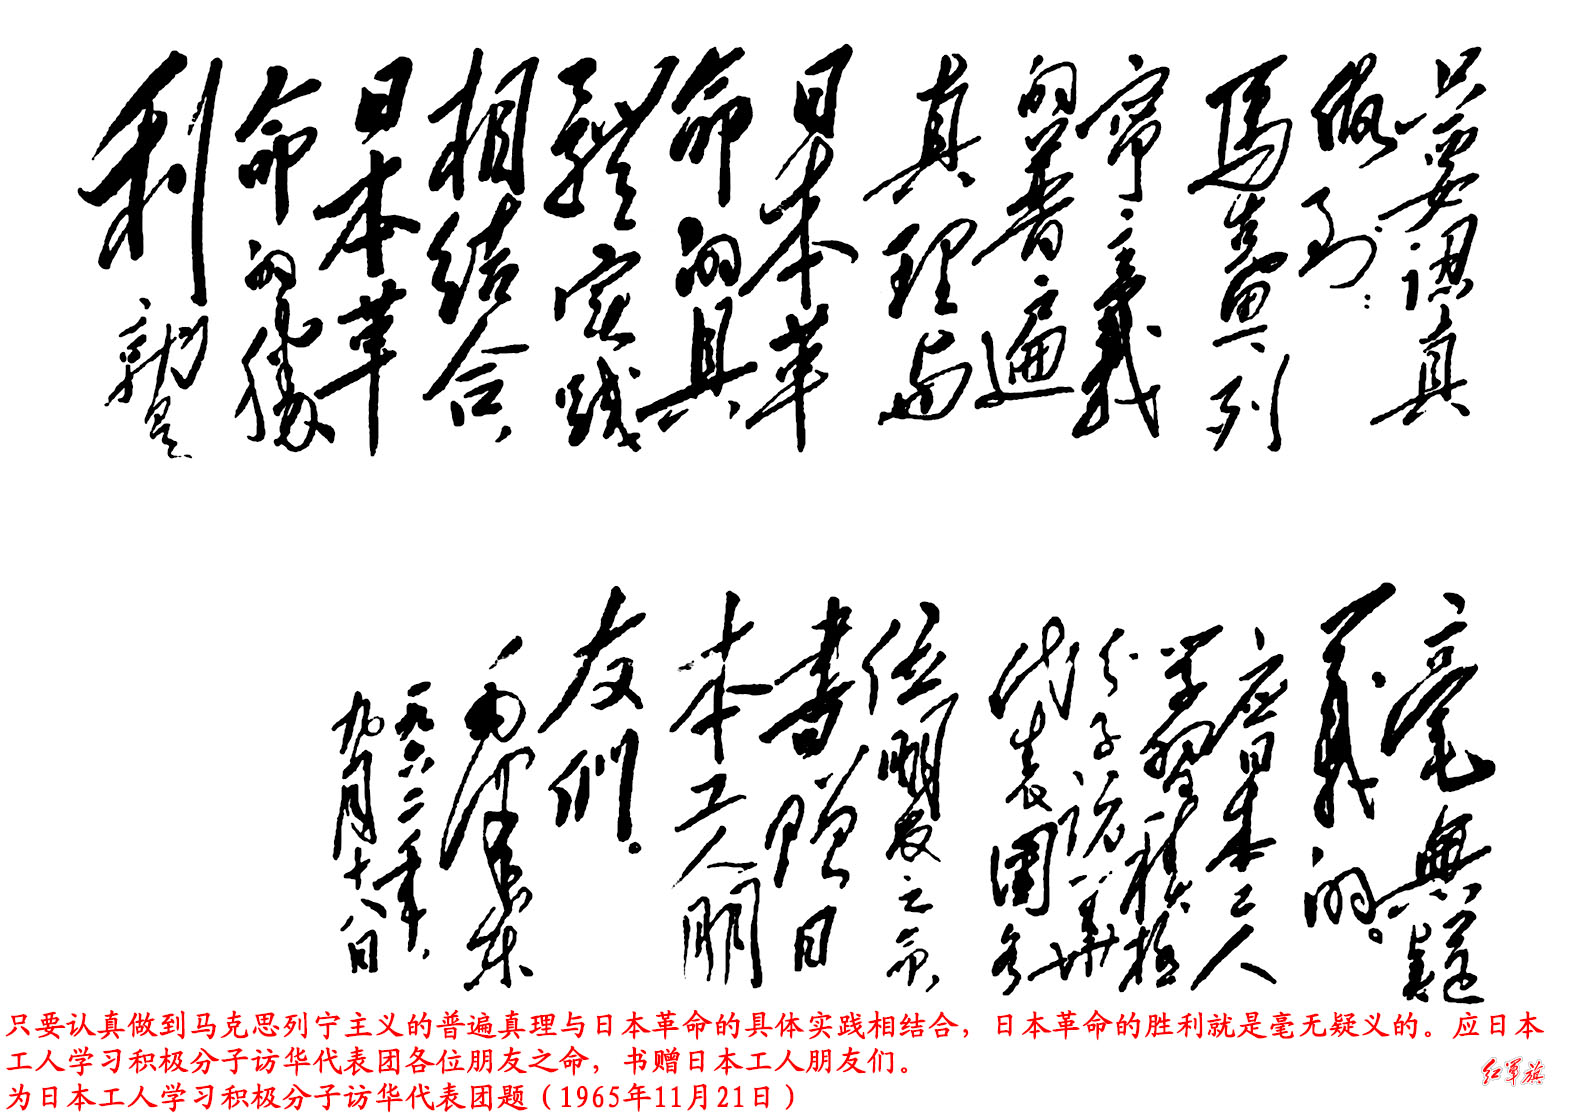 只要認真
做到：
馬克思列
寧主義
的普遍
真理与
日本革
命的具
體实践
相結合，
日本革
命的勝
利就是
毫無疑
義的。
应日本工人
学習積極
分子訪華
代表團各
位朋友之命，
書贈日
本工人朋
友們。
毛澤東
一九六二年，
九月十八日
只要认真做到马克思列宁主义的普遍真理与日本革命的具体实践相结合，日本革命的胜利就是毫无疑义的。应日本
工人学习积极分子访华代表团各位朋友之命，书赠日本工人朋友们。
为日本工人学习积极分子访华代表团题（1965年11月21日）
红军旗